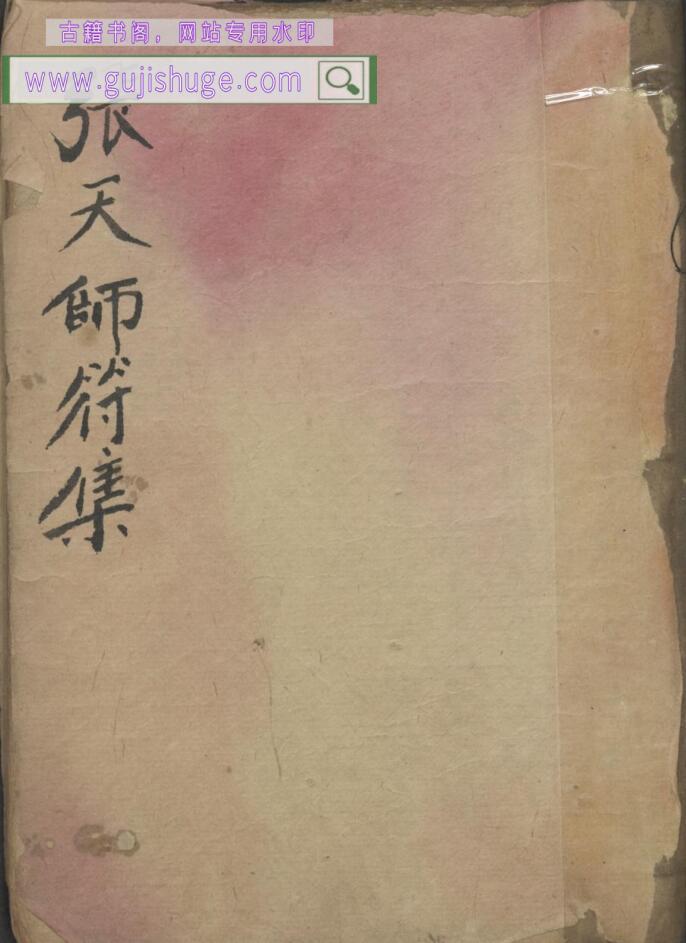 古籍书阁，网站专用水印
www.gujishuge.com
張天師符集